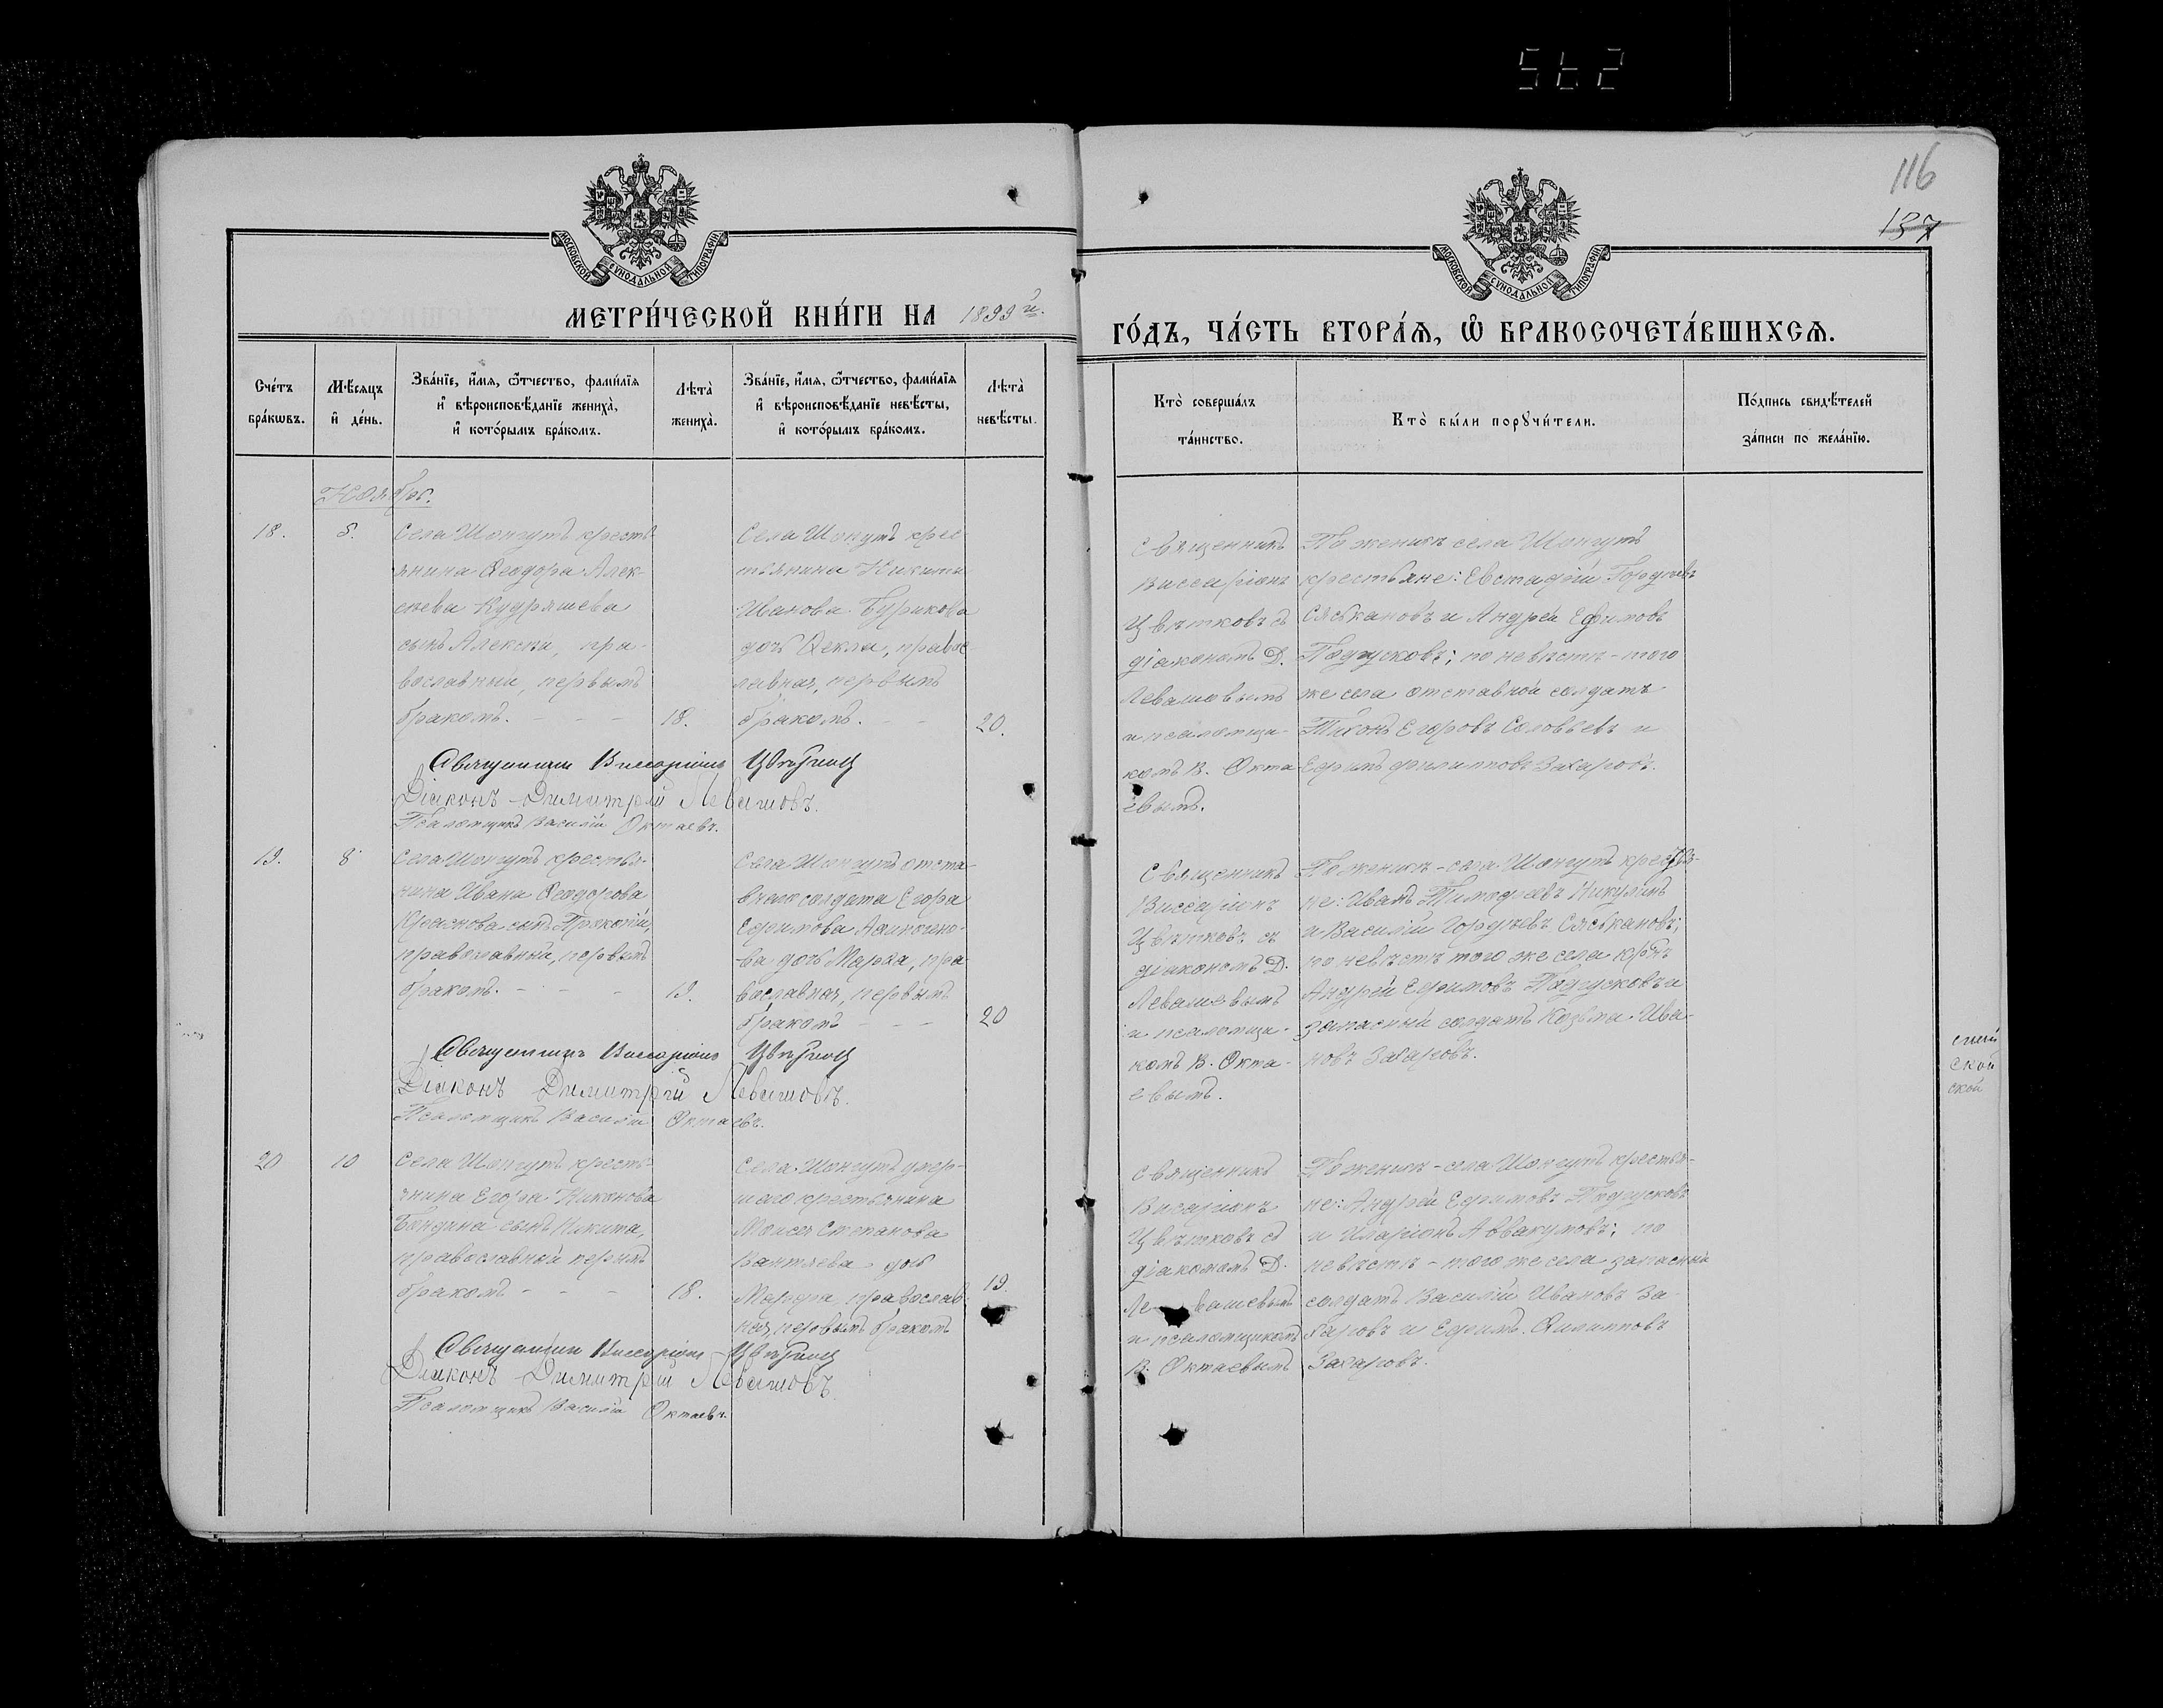 562
116
137
МОСКОВСКОЙ СѴНОДАЛЬНОЙ ТИПОГРАФІИ
МОСКОВСКОЙ СѴНОДАЛЬНОЙ ТИПОГРАФІИ
МЕТРИ́ЧЕСКОЙ КНИ́ГИ НА 1899 й.
ГО́ДЪ, ЧА́СТЬ ВТОРА́Ѧ, Ѡ҆ БРАКОСОЧЕТА́ВШИХСѦ.
Сче́тъ бра́кѡвъ.
Мѣ́сѧцъ и҆ де́нь.
Зва́нїе, и҆́мѧ, ѻ҆́тчество, фамѝлїѧ
и҆ вѣроисповѣ́данїе жениха̀,
и҆ кото́рымъ бра́комъ.
Лѣта̀ жениха̀.
Зва́нїе, и҆́мѧ, ѻ҆́тчество, фамѝлїѧ
и҆ вѣроисповѣ́данїе невѣ́сты,
и҆ кото́рымъ бра́комъ.
Лѣта̀ невѣ́сты.
Кто̀ соверша́лъ
та́инство.
Кто̀ бы́ли порꙋчи́тели.
По́дпись свидѣ́телей
за́писи по жела́нїю.
Ноябрь.
18.
5.
Села Шонгутъ кресть-
янина Ѳеодора Алек-
сеева Кудряшева
сынъ Алексѣй, пра-
вославный, первымъ
бракомъ. - - -
18.
Села Шонгутъ крес-
тьянина Никиты
Иванова Бурикова
дочь Ѳекла, правос-
лавная, первымъ
бракомъ. - -
20.
Священникъ
Виссаріонъ
Цвѣтковъ съ
діакономъ Д.
Левашовымъ
и псаломщи-
комъ В. Окта-
евымъ.
По женихѣ села Шонгутъ
крестьяне: Евстафій Гордѣевъ
Сяськановъ и Андрей Ефимовъ
Подусковъ; по невѣстѣ - того
же села отставной солдатъ
Тихонъ Егоровъ Соловьевъ и
Ефимъ Филипповъ Захаровъ.
Священникъ Виссаріонъ Цвѣтковъ
Діаконъ Димитрій Левашовъ.
Псаломщикъ Василій Октаевъ.
19.
8
Села Шонгутъ крестья-
нина Ивана Ѳеодорова
Краснова сынъ Прокопій,
православный, первымъ
бракомъ. - - -
19.
Села Шонгутъ отста-
вного солдата Егора
Ефимова
дочь Марѳа, пра-
вославная, первымъ
бракомъ - - -
20
Священникъ
Виссаріонъ
Цвѣтковъ съ
діакономъ Д.
Левашевымъ
и псаломщи-
комъ В. Окта-
евымъ.
По женихѣ - села Шонгутъ крестья-
не: Иванъ Тимофеевъ Никулинъ
и Василій Гордѣевъ Сяськановъ;
по невѣстѣ того же села кр-нъ
Андрей Ефимовъ Подусковъ и
запасный солдатъ Козьма Ива-
новъ Захаровъ.
Священникъ Виссаріонъ Цвѣтковъ
Діаконъ Димитрій Левашовъ.
Псаломщикъ Василій Октаевъ.
20
10
Села Шонгутъ кресть-
янина Егора Никонова
Бандина сынъ Никита,
православный первымъ
бракомъ - - -
18.
Села Шонгутъ умер-
шаго крестьянина
Моисея Степанова
Вантяева дочь
Марѳа, православ-
ная, первымъ бракомъ
19.
Священникъ
Виссаріонъ
Цвѣтковъ съ
діакономъ Д.
Левашевымъ
и псаломщикомъ
В. Октаевымъ
По женихѣ - села Шонгутъ крестья-
не: Андрей Ефимовъ Подусковъ
и Иларіонъ Аввакумовъ; по
невѣстѣ - того же села запасный
солдатъ Василій Ивановъ За-
харовъ и Ефимъ Филипповъ
Захаровъ.
Священникъ Виссаріонъ Цвѣтковъ
Діаконъ Димитрій Левашовъ.
Псаломщикъ Василій Октаевъ.
ской
ской